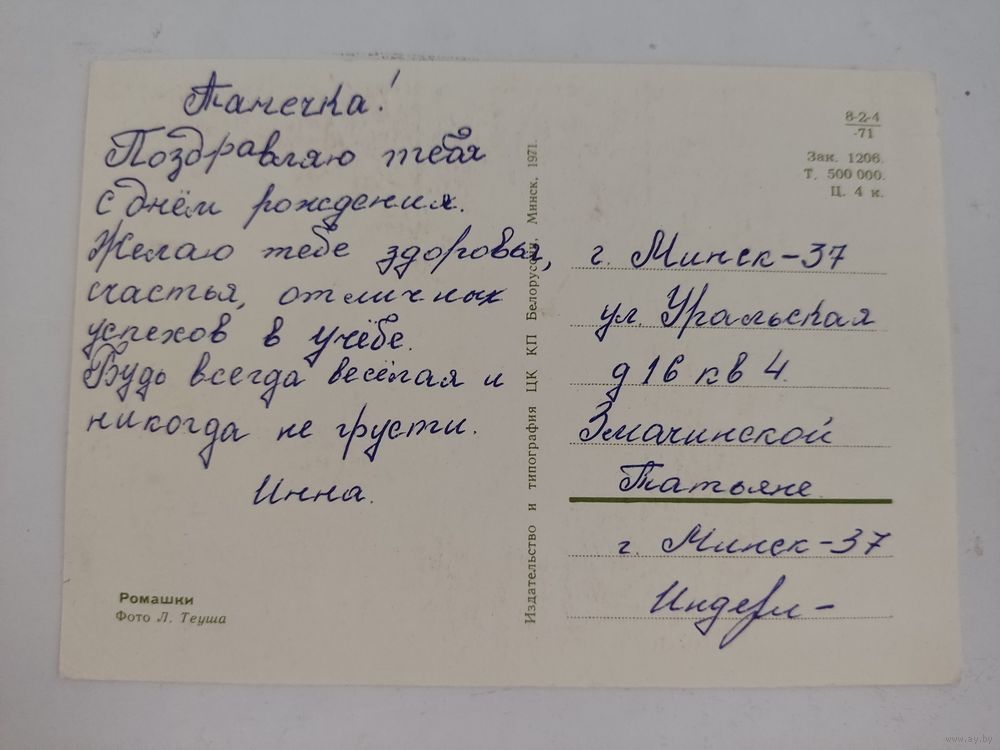 Танечка!
Поздравляю тебя
с днём рождения.
Желаю тебе здоровья,
счастья, отличных
успехов в учёбе.
Будь всегда весёлая и
никогда не грусти.
Инна.
Ромашки
Фото Л. Теуша
Издательство и типография ЦК КП Белоруссии, Минск, 1971.
8-2-4
-71
Зак. 1206.
Т. 500 000.
Ц. 4 к.
г. Минск-37
ул. Уральская
д 16 кв 4.
Змачинской
Татьяне.
г. Минск-37
www.ay.by